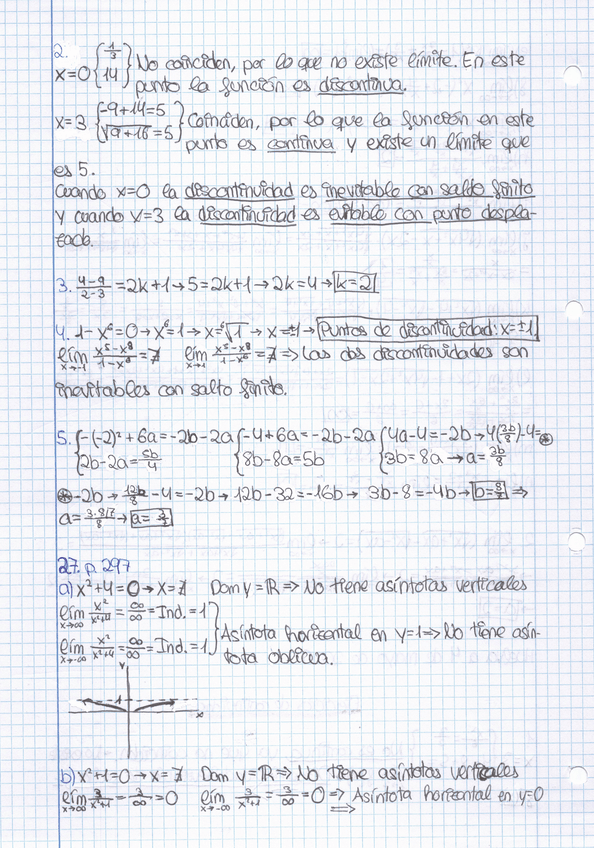 2.
x=0 { 1/3 / 14 } No coinciden, por lo que no existe límite. En este
punto la función es discontinua.
x=3 { -9+14=5 / √9+16=5 } Coinciden, por lo que la función en este
punto es continua y existe un límite que
es 5.
Cuando x=0 la discontinuidad es inevitable con salto finito
y cuando x=3 la discontinuidad es evitable con punto despla-
zado.
3. 4-9/2-3 = 2k+1 → 5=2k+1 → 2k=4 → k=2
4. 1-x⁶=0 → x⁶=1 → x=⁶√1 → x=±1 → Puntos de discontinuidad: x=±1
lím x→-1 x⁵-x⁸/1-x⁶ = ∄ lím x→1 x⁵-x⁸/1-x⁶ = ∄ ⇒ Las dos discontinuidades son
inevitables con salto finito.
5. { -(-2)²+6a=-2b-2a { -4+6a=-2b-2a { 4a-4=-2b → 4(3b/8)-4= ⊛
{ 2b-2a=5b/4 { 8b-8a=5b { 3b=8a → a=3b/8
⊛ -2b → 12b/8 -4=-2b → 12b-32=-16b → 3b-8=-4b → b=8/7 ⇒
a= 3·8/7/8 → a=3/7
27. p. 297
a) x²+4=0 → x=∄ Dom y=ℝ ⇒ No tiene asíntotas verticales
lím x→∞ x²/x²+4 = ∞/∞ = Ind. = 1
lím x→-∞ x²/x²+4 = ∞/∞ = Ind. = 1 } Asíntota horizontal en y=1 ⇒ No tiene asín-
tota oblicua.
y
1
x
b) x²+1=0 → x=∄ Dom y=ℝ ⇒ No tiene asíntotas verticales
lím x→∞ 3/x²+1 = 3/∞ = 0 lím x→-∞ 3/x²+1 = 3/∞ = 0 ⇒ Asíntota horizontal en y=0
⇒